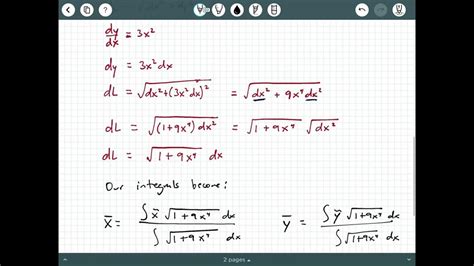 dy/dx = 3x²
dy = 3x² dx
dL = √(dx² + (3x² dx)²) = √(dx² + 9x⁴ dx²)
dL = √((1 + 9x⁴) dx²) = √(1 + 9x⁴) √(dx²)
dL = √(1 + 9x⁴) dx
Our integrals become:
x̄ = ∫ x̃ √(1 + 9x⁴) dx / ∫ √(1 + 9x⁴) dx ȳ = ∫ ỹ √(1 + 9x⁴) dx / ∫ √(1 + 9x⁴) dx
2 pages